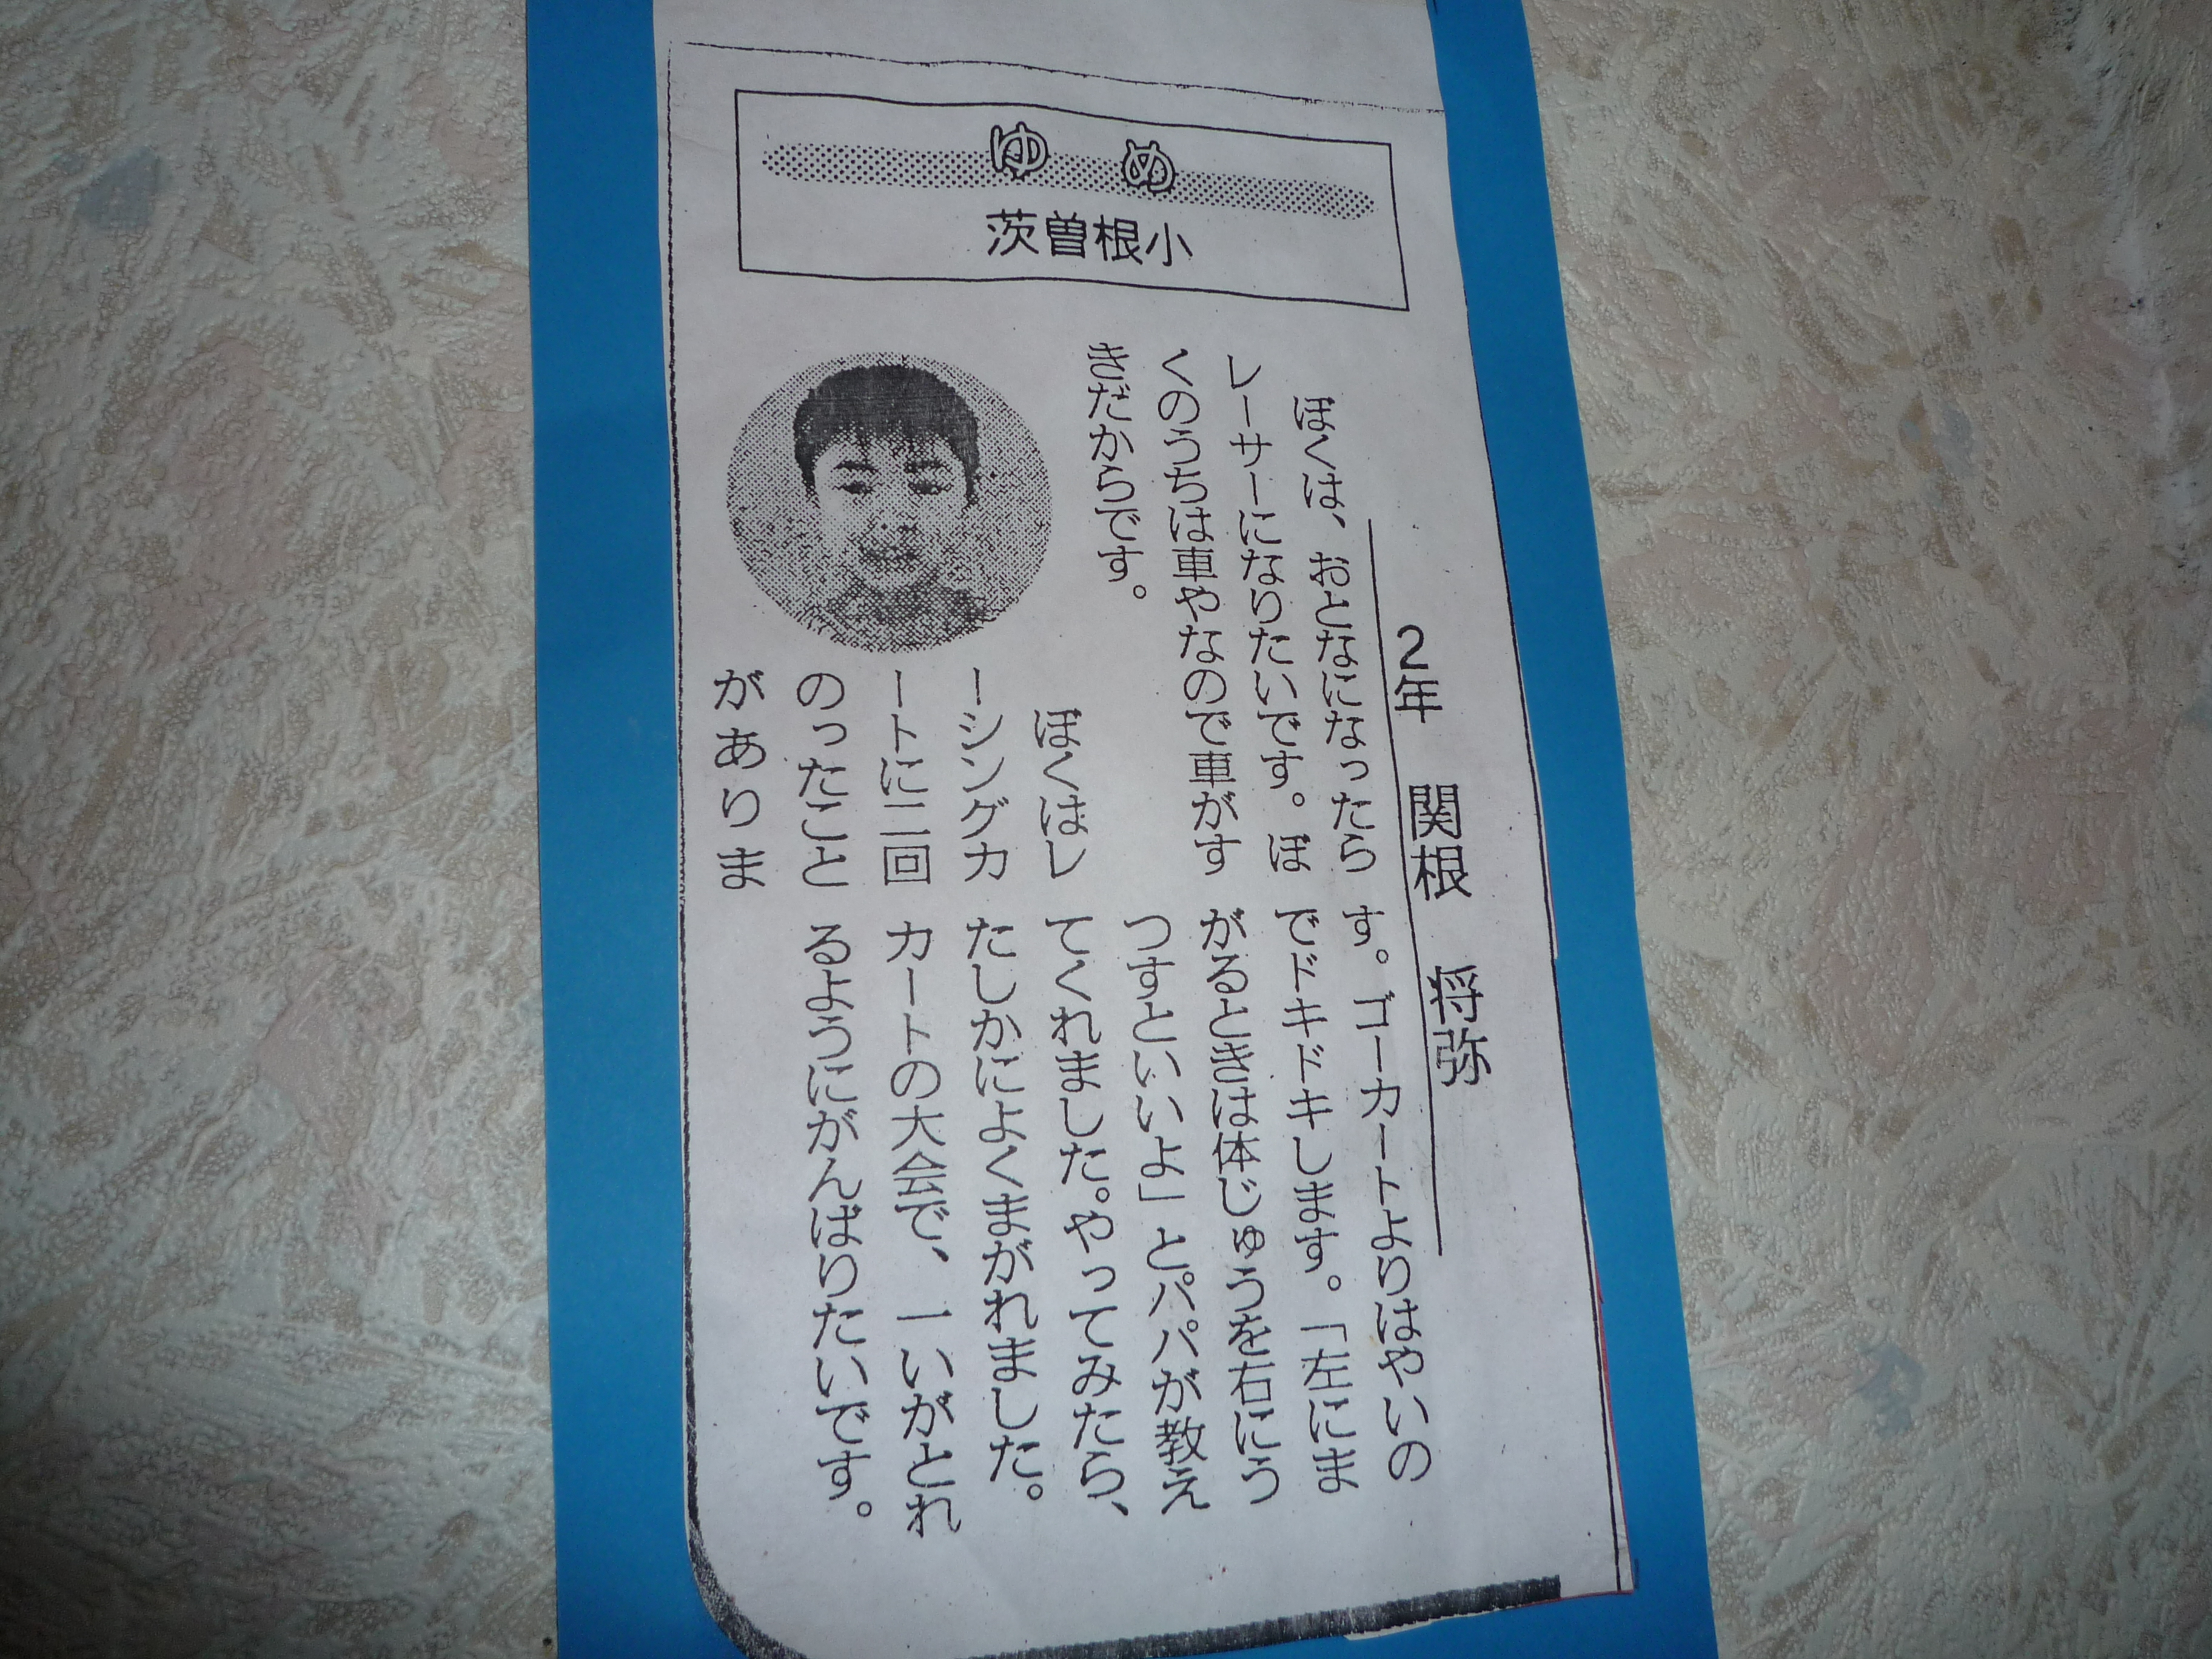 ゆめ
茨曽根小
2年 関根 将弥
ぼくは、おとなになったら
レーサーになりたいです。ぼ
くのうちは車やなので車がす
きだからです。
ぼくはレ
ーシングカ
ートに二回
のったこと
がありま
す。ゴーカートよりはやいの
でドキドキします。「左にま
がるときは体じゅうを右にう
つすといいよ」とパパが教え
てくれました。やってみたら、
たしかによくまがれました。
カートの大会で、一いがとれ
るようにがんばりたいです。